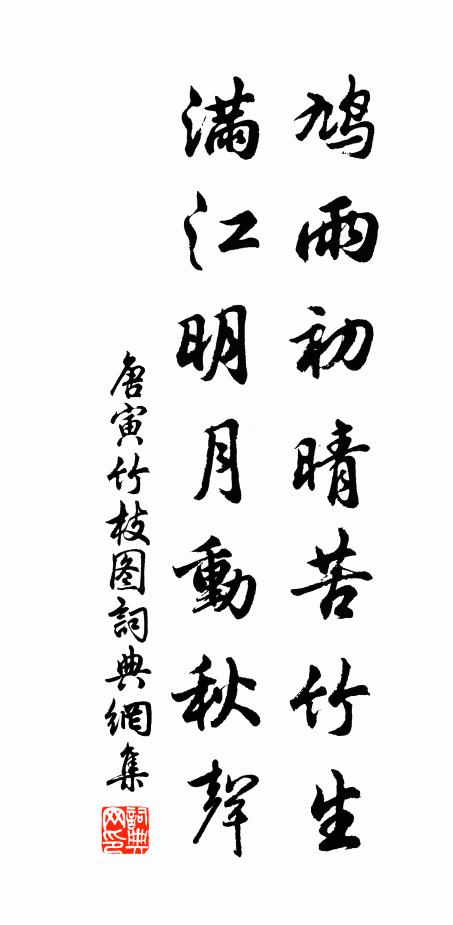 鳩雨初晴苦竹生
滿江明月動秋聲
唐寅竹枝图詞典網集
詞典网印